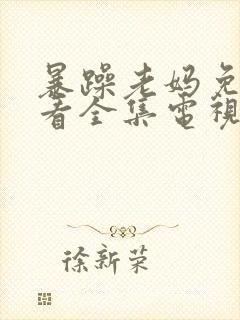 暴躁老妈免
看全集電視
徐新荣